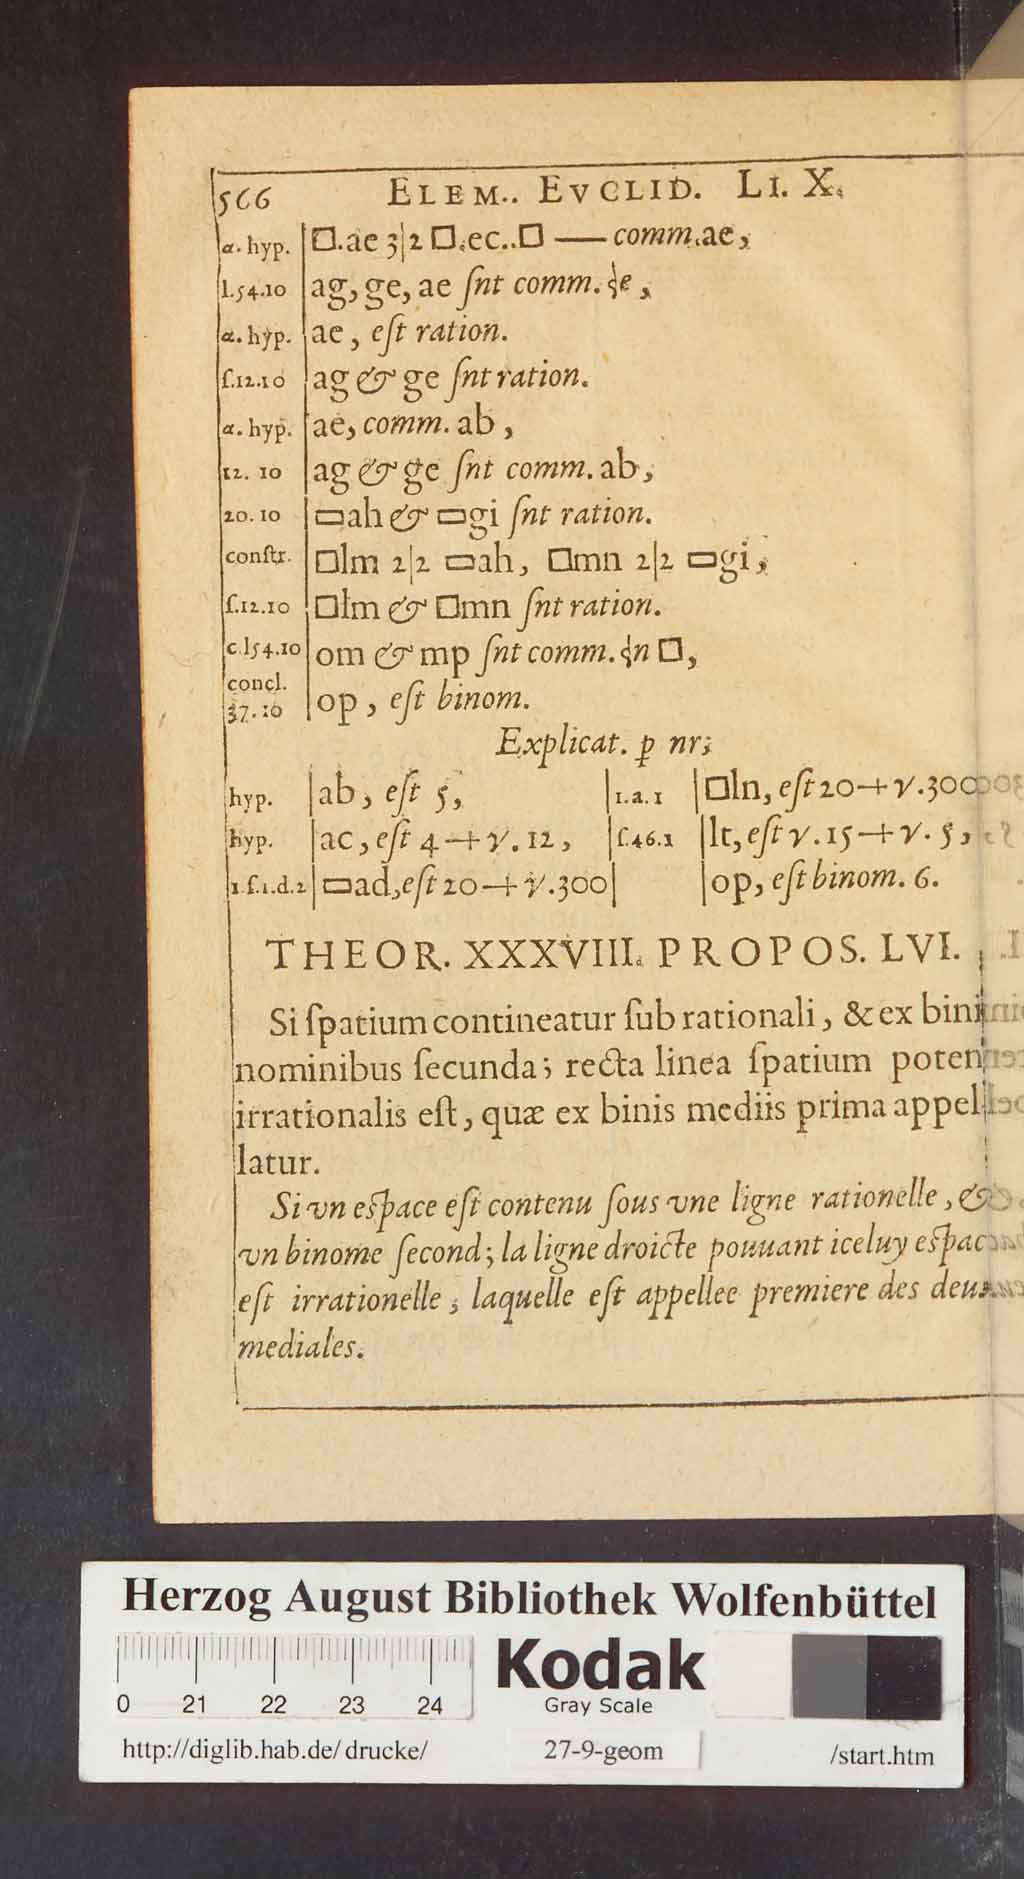 566 ELEM.. EVCLID. LI. X.
α. hyp. □.ae 3|2 □.ec..□ — comm.ae,
l.54.10 ag, ge, ae ſnt comm. ɬe,
α. hyp. ae, eſt ration.
ſ.12.10 ag & ge ſnt ration.
α. hyp. ae, comm. ab,
12. 10 ag & ge ſnt comm. ab,
20. 10 ▭ah & ▭gi ſnt ration.
conſtr. □lm 2|2 ▭ah, □mn 2|2 ▭gi,
ſ.12.10 □lm & □mn ſnt ration.
c.l54.10 om & mp ſnt comm. ɬn □,
concl.
37.10 op, eſt binom.
Explicat. ꝑ nr;
hyp. |ab, eſt 5, |1.a.1 |□ln, eſt 20—+√.300
hyp. |ac, eſt 4—+√.12, |ſ.46.1 |lt, eſt √.15—+√.5,
1.ſ.1.d.2 |▭ad, eſt 20—+√.300| |op, eſt binom. 6.
THEOR. XXXVIII. PROPOS. LVI.
Si ſpatium contineatur ſub rationali, & ex bini
nominibus ſecunda; recta linea ſpatium poten
irrationalis eſt, quæ ex binis mediis prima appel
latur.
Si vn eſpace eſt contenu ſous vne ligne rationelle, &
vn binome ſecond; la ligne droicte pouuant iceluy eſpac
eſt irrationelle, laquelle eſt appellee premiere des deux
mediales.
Herzog August Bibliothek Wolfenbüttel
Kodak
0 21 22 23 24 Gray Scale
http://diglib.hab.de/drucke/ 27-9-geom /start.htm